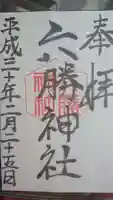 奉拝
六勝神社
平成三十年十二月二十五日